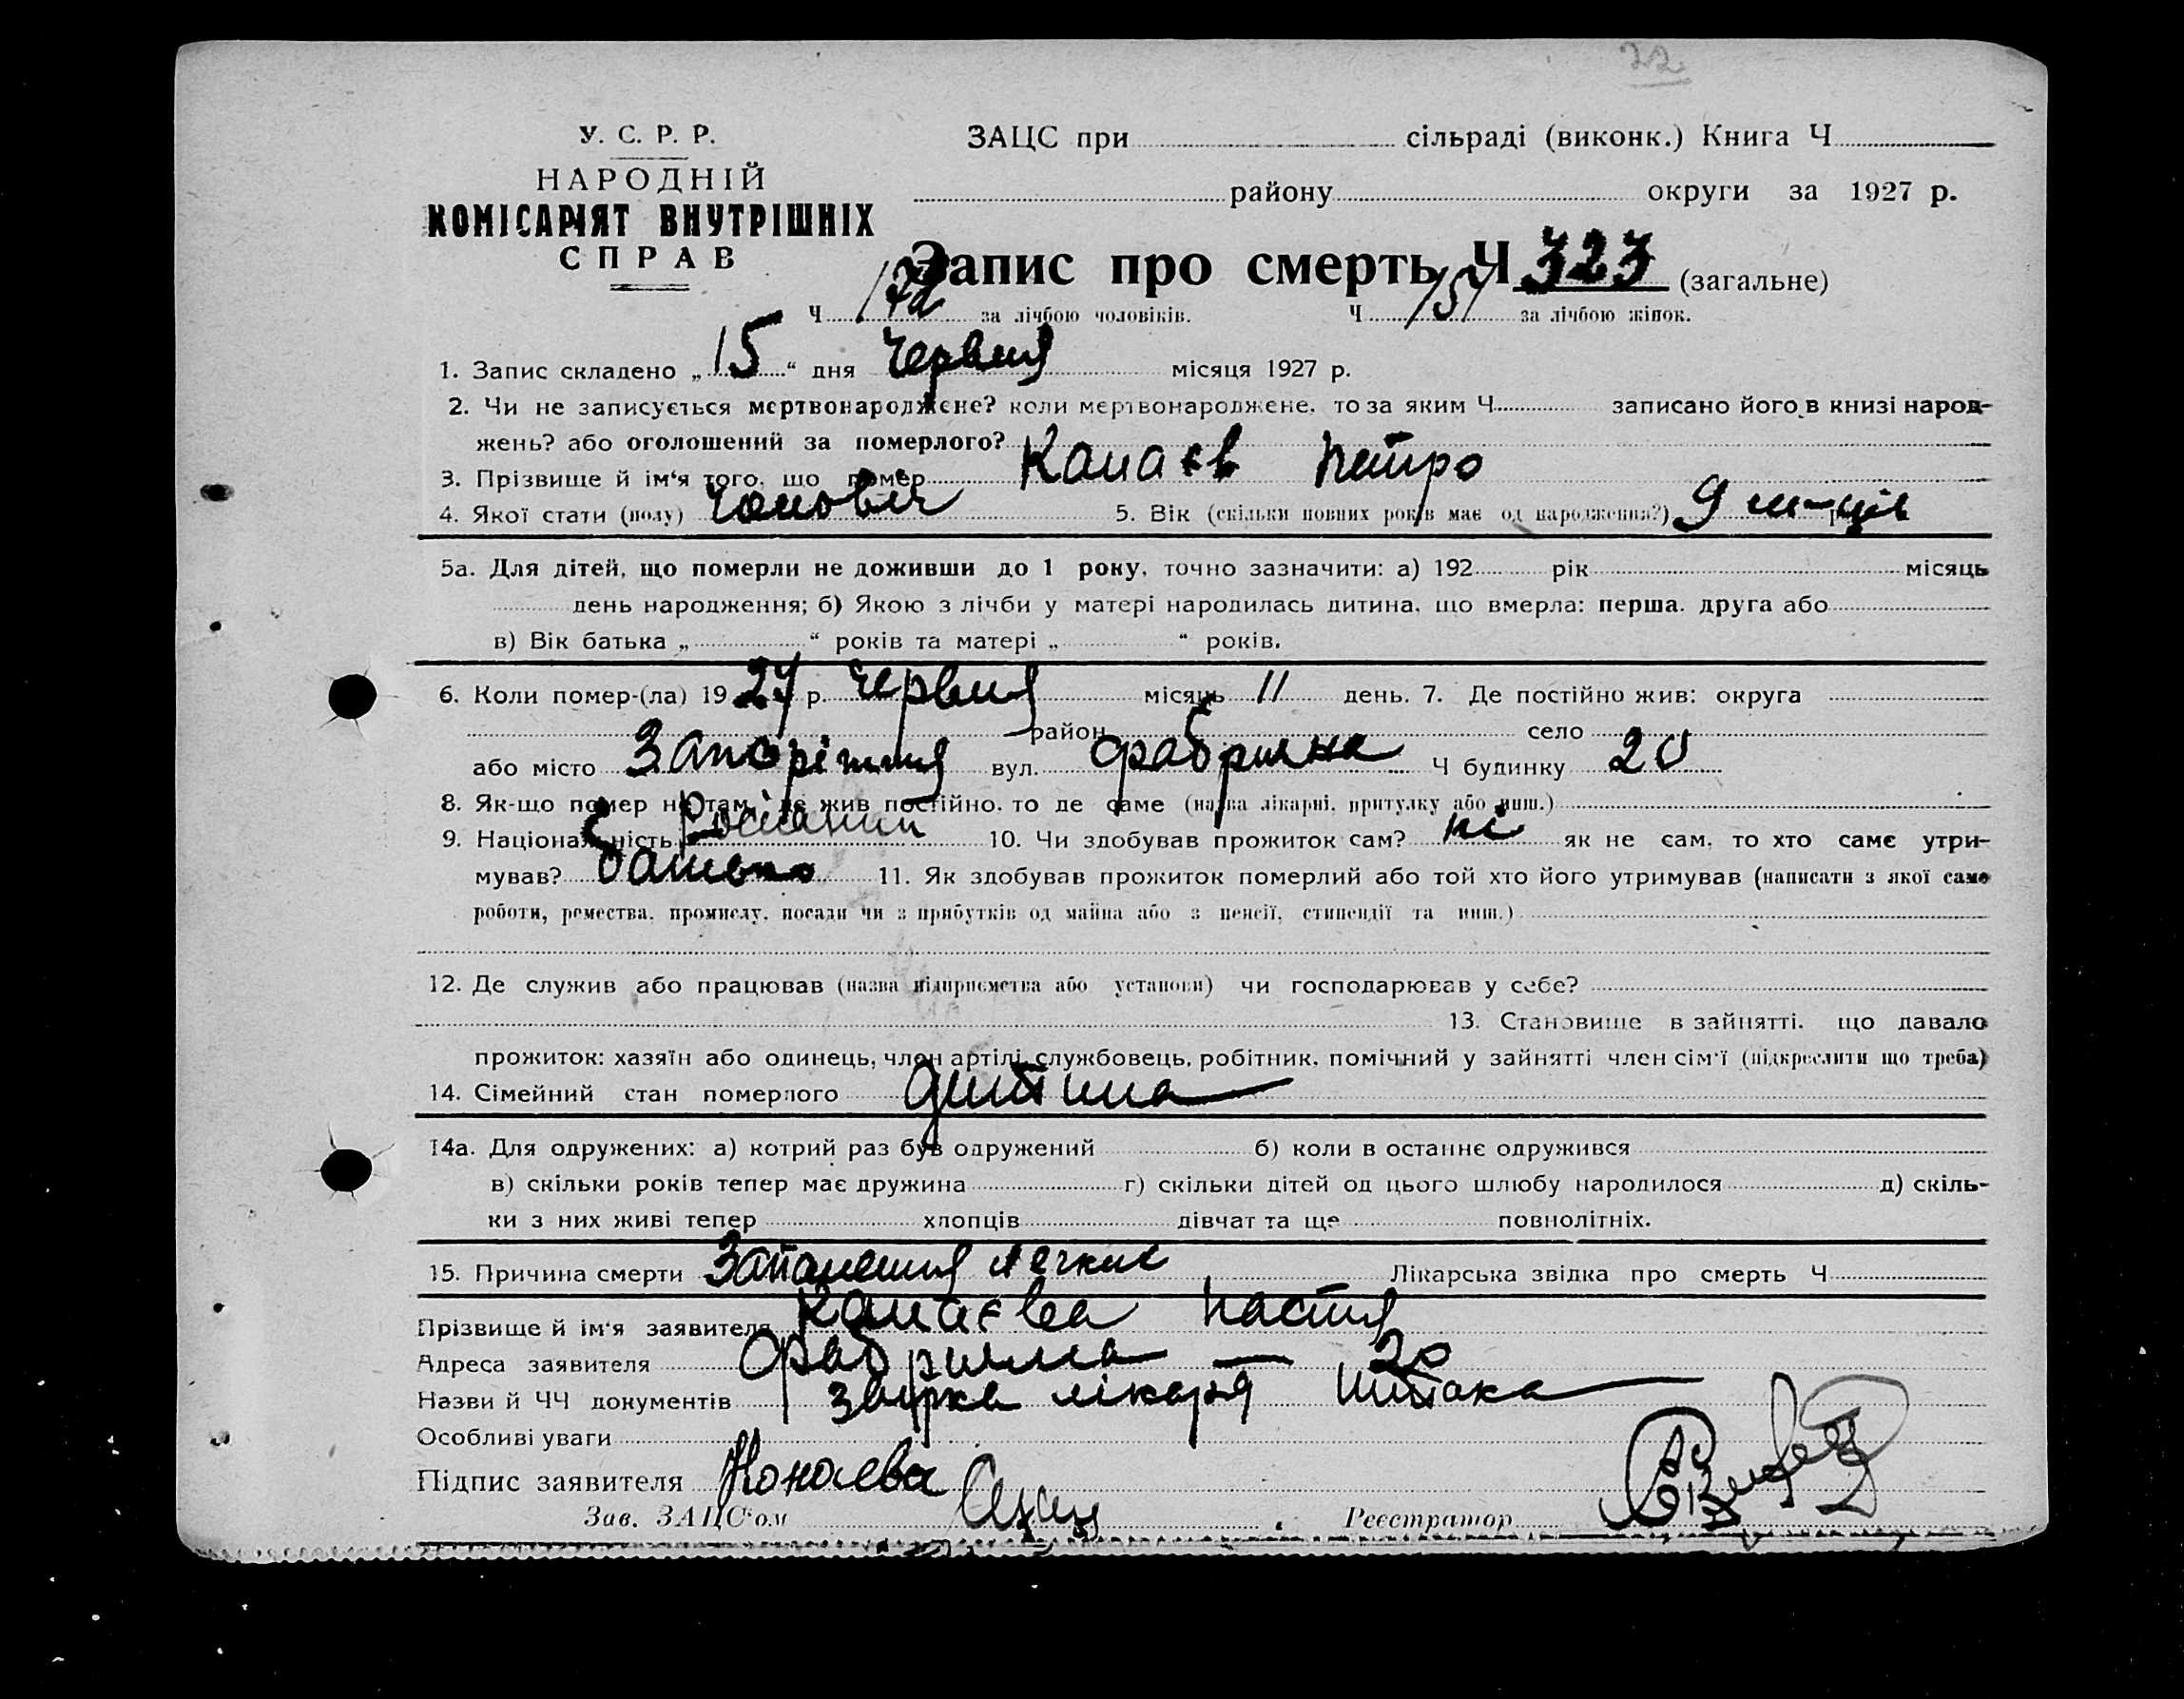 22
У. С. Р. Р.
НАРОДНІЙ
КОМІСАРІЯТ ВНУТРІШНІХ
СПРАВ
ЗАЦС при сільраді (виконк.) Книга Ч
району округи за 1927 р.
Запис про смерть Ч 323 (загальне)
Ч 172 за лічбою чоловіків. Ч 151 за лічбою жінок.
1. Запис складено „ 15 “ дня Червня місяця 1927 р.
2. Чи не записується мертвонароджене? коли мертвонароджене, то за яким Ч записано його в книзі народ-
жень? або оголошений за померлого?
3. Прізвище й ім'я того, що помер Канаєв Петро
4. Якої стати (полу) Чоловіч 5. Вік (скільки повних років має од народження?) 9 м-ців р
5а. Для дітей, що померли не доживши до 1 року, точно зазначити: а) 192 рік місяць
день народження; б) Якою з лічби у матері народилась дитина, що вмерла: перша, друга або
в) Вік батька „ “ років та матері „ “ років.
6. Коли помер-(ла) 19 27 р. Червня місяць 11 день. 7. Де постійно жив: округа
район село
або місто Запоріжжя вул. Фабрична Ч будинку 20
8. Як-що помер не там, де жив постійно, то де саме (назва лікарні, притулку або инш.)
9. Національність Росіянин 10. Чи здобував прожиток сам? ні як не сам, то хто саме утри-
мував? батько 11. Як здобував прожиток померлий або той хто його утримував (написати з якої саме
роботи, ремества, промислу, посади чи з прибутків од майна або з пенсії, стипендії та инш.)
12. Де служив або працював (назва підприємства або установи) чи господарював у себе?
13. Становище в зайнятті, що давало
прожиток: хазяїн або одинець, член артілі, службовець, робітник, помічний у зайнятті член сім'ї (підкреслити що треба)
14. Сімейний стан померлого дитина
14а. Для одружених: а) котрий раз був одружений б) коли в останнє одружився
в) скільки років тепер має дружина г) скільки дітей од цього шлюбу народилося д) скіль-
ки з них живі тепер хлопців дівчат та ще повнолітніх.
15. Причина смерти Запалення легких Лікарська звідка про смерть Ч
Прізвище й ім'я заявителя Канаєва Настя
Адреса заявителя Фабрична — 20
Назви й ЧЧ документів Звірка лікаря
Особливі уваги
Підпис заявителя Конаева
Зав. ЗАЦС'ом Реєстратор